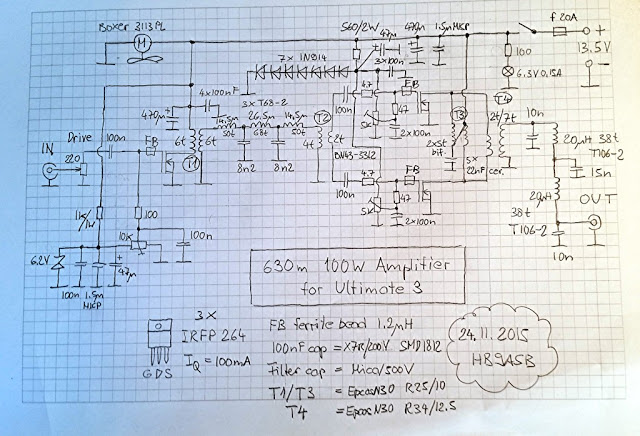 Boxer 3113PL
M
560/2W
47µ
+
470µ
1.5m MKP
f 20A
+
13.5V
-
100
6.3V 0.15A
7x 1N914
3x100n
4x100nF
3x T68-2
470µ
14.5m
26.5m
14.5m
50t
68t
50t
T2
100n
4.7
FB
47
5k
2x100n
T3
T4
10n
Drive
IN
220
100n
FB
6t
6t
T1
8n2
8n2
4t
2t
BN43-3312
2x5t
bif.
5x
22nF cer.
2t
7t
20µH 38t
T106-2
15n
20µH
OUT
38t
T106-2
10n
100n
4.7
FB
47
5k
2x100n
1k
1W
100
10k
100n
6.2V
100n
1.5m
MKP
+
47µ
630m 100W Amplifier
for Ultimate 3
3x
IRFP 264
IQ = 100mA
G D S
FB ferrite bead 1.2µH
100nF cap = X7R/200V SMD1812
Filter cap = Mica/500V
T1/T3 = Epcos N30 R25/10
T4 = Epcos N30 R34/12.5
24.11.2015
HB9ASB